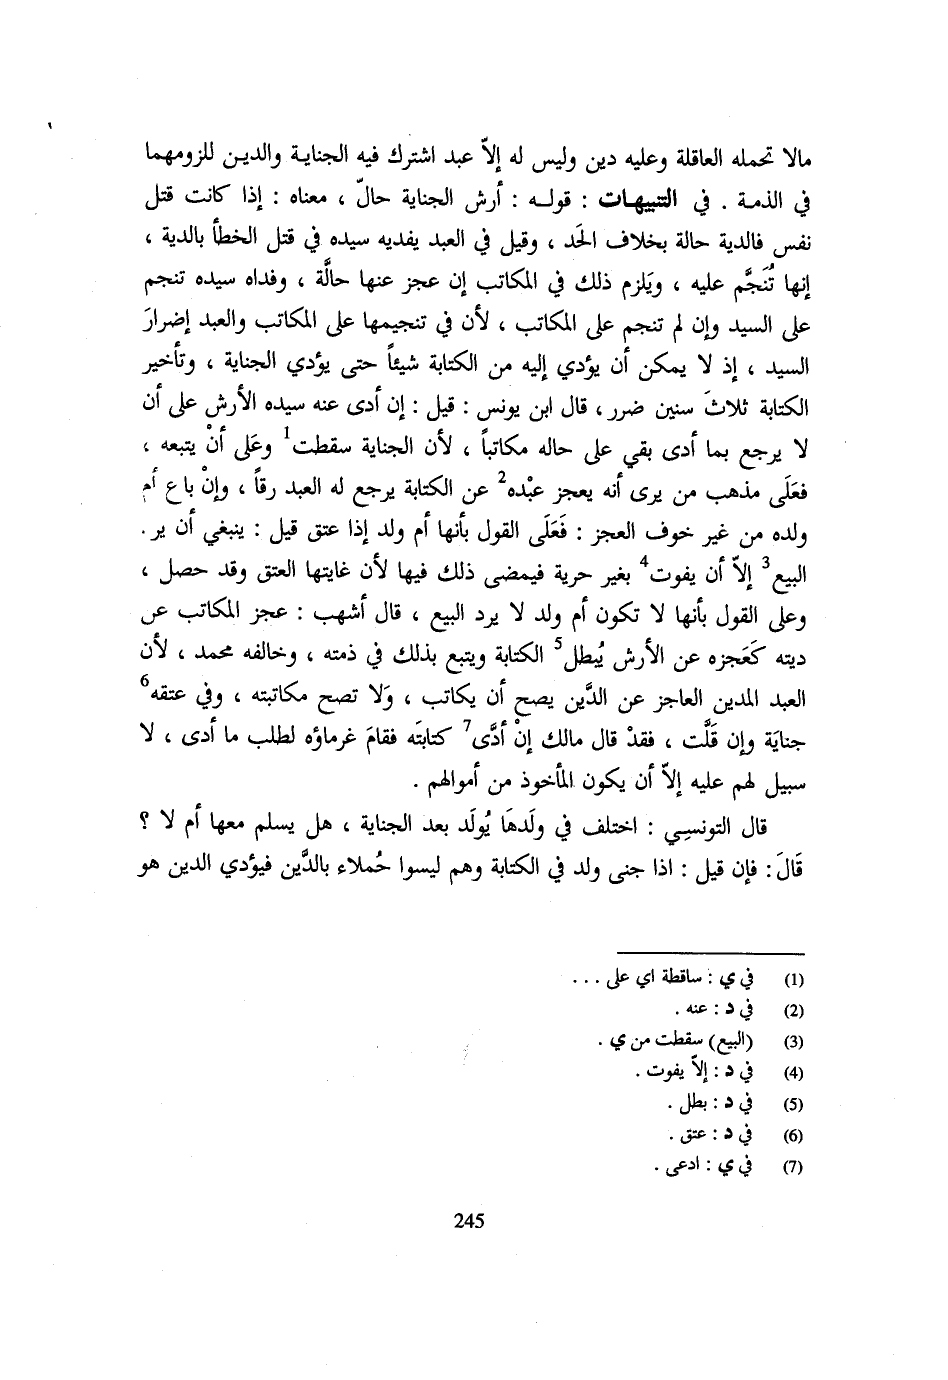 مالا تحمله العاقلة وعليه دين وليس له إلاّ عبد اشترك فيه الجناية والدين للزومهما
في الذمة . في التنبيهات : قوله : أرش الجناية حالّ ، معناه : إذا كانت قتل
نفس فالدية حالة بخلاف الحَد ، وقيل في العبد يفديه سيده في قتل الخطأ بالدية ،
إنها تُنَجَّم عليه ، ويَلزم ذلك في المكاتب إن عجز عنها حالَّة ، وفداه سيده تنجم
على السيد وإن لم تنجم على المكاتب ، لأن في تنجيمها على المكاتب والعبد إضرارَ
السيد ، إذ لا يمكن أن يؤدي إليه من الكتابة شيئاً حتى يؤدي الجناية ، وتأخير
الكتابة ثلاثَ سنين ضرر ، قال ابن يونس : قيل : إن أدى عنه سيده الأرش على أن
لا يرجع بما أدى بقي على حاله مكاتباً ، لأن الجناية سقطت1 وعَلى أنْ يتبعه ،
فعَلَى مذهب من يرى أنه يعجز عبْده2 عن الكتابة يرجع له العبد رقاً ، وإنْ باع أم
ولده من غير خوف العجز : فَعَلَى القول بأنها أم ولد إذا عتق قيل : ينبغي أن ير.
البيع3 إلاّ أن يفوت4 بغير حرية فيمضى ذلك فيها لأن غايتها العتق وقد حصل ،
وعلى القول بأنها لا تكون أم ولد لا يرد البيع ، قال أشهب : عجز المكاتب عن
ديته كَعَجزه عن الأرش يُبطل5 الكتابة ويتبع بذلك في ذمته ، وخالفه محمد ، لأن
العبد المدين العاجز عن الدَّين يصح أن يكاتب ، وَلا تصح مكاتبته ، وفي عتقه6
جنايَة وإن قَلَّت ، فقدْ قال مالك إنْ أدَّى7 كتابتَه فقامَ غرماؤه لطلب ما أدى ، لا
سبيل لهم عليه إلاّ أن يكون المأخوذ من أموالهم .
قال التونسِي : اختلف في ولَدهَا يُولَد بعد الجناية ، هل يسلم معها أم لا ؟
قَالَ : فإن قيل : اذا جنى ولد في الكتابة وهم ليسوا حُملاء بالدَّين فيؤدي الدين هو
(1) في ي : ساقطة اي على ...
(2) في د : عنه .
(3) (البيع) سقطت من ي .
(4) في د : إلاّ يفوت .
(5) في د : بطل .
(6) في د : عتق .
(7) في ي : ادعى .
245